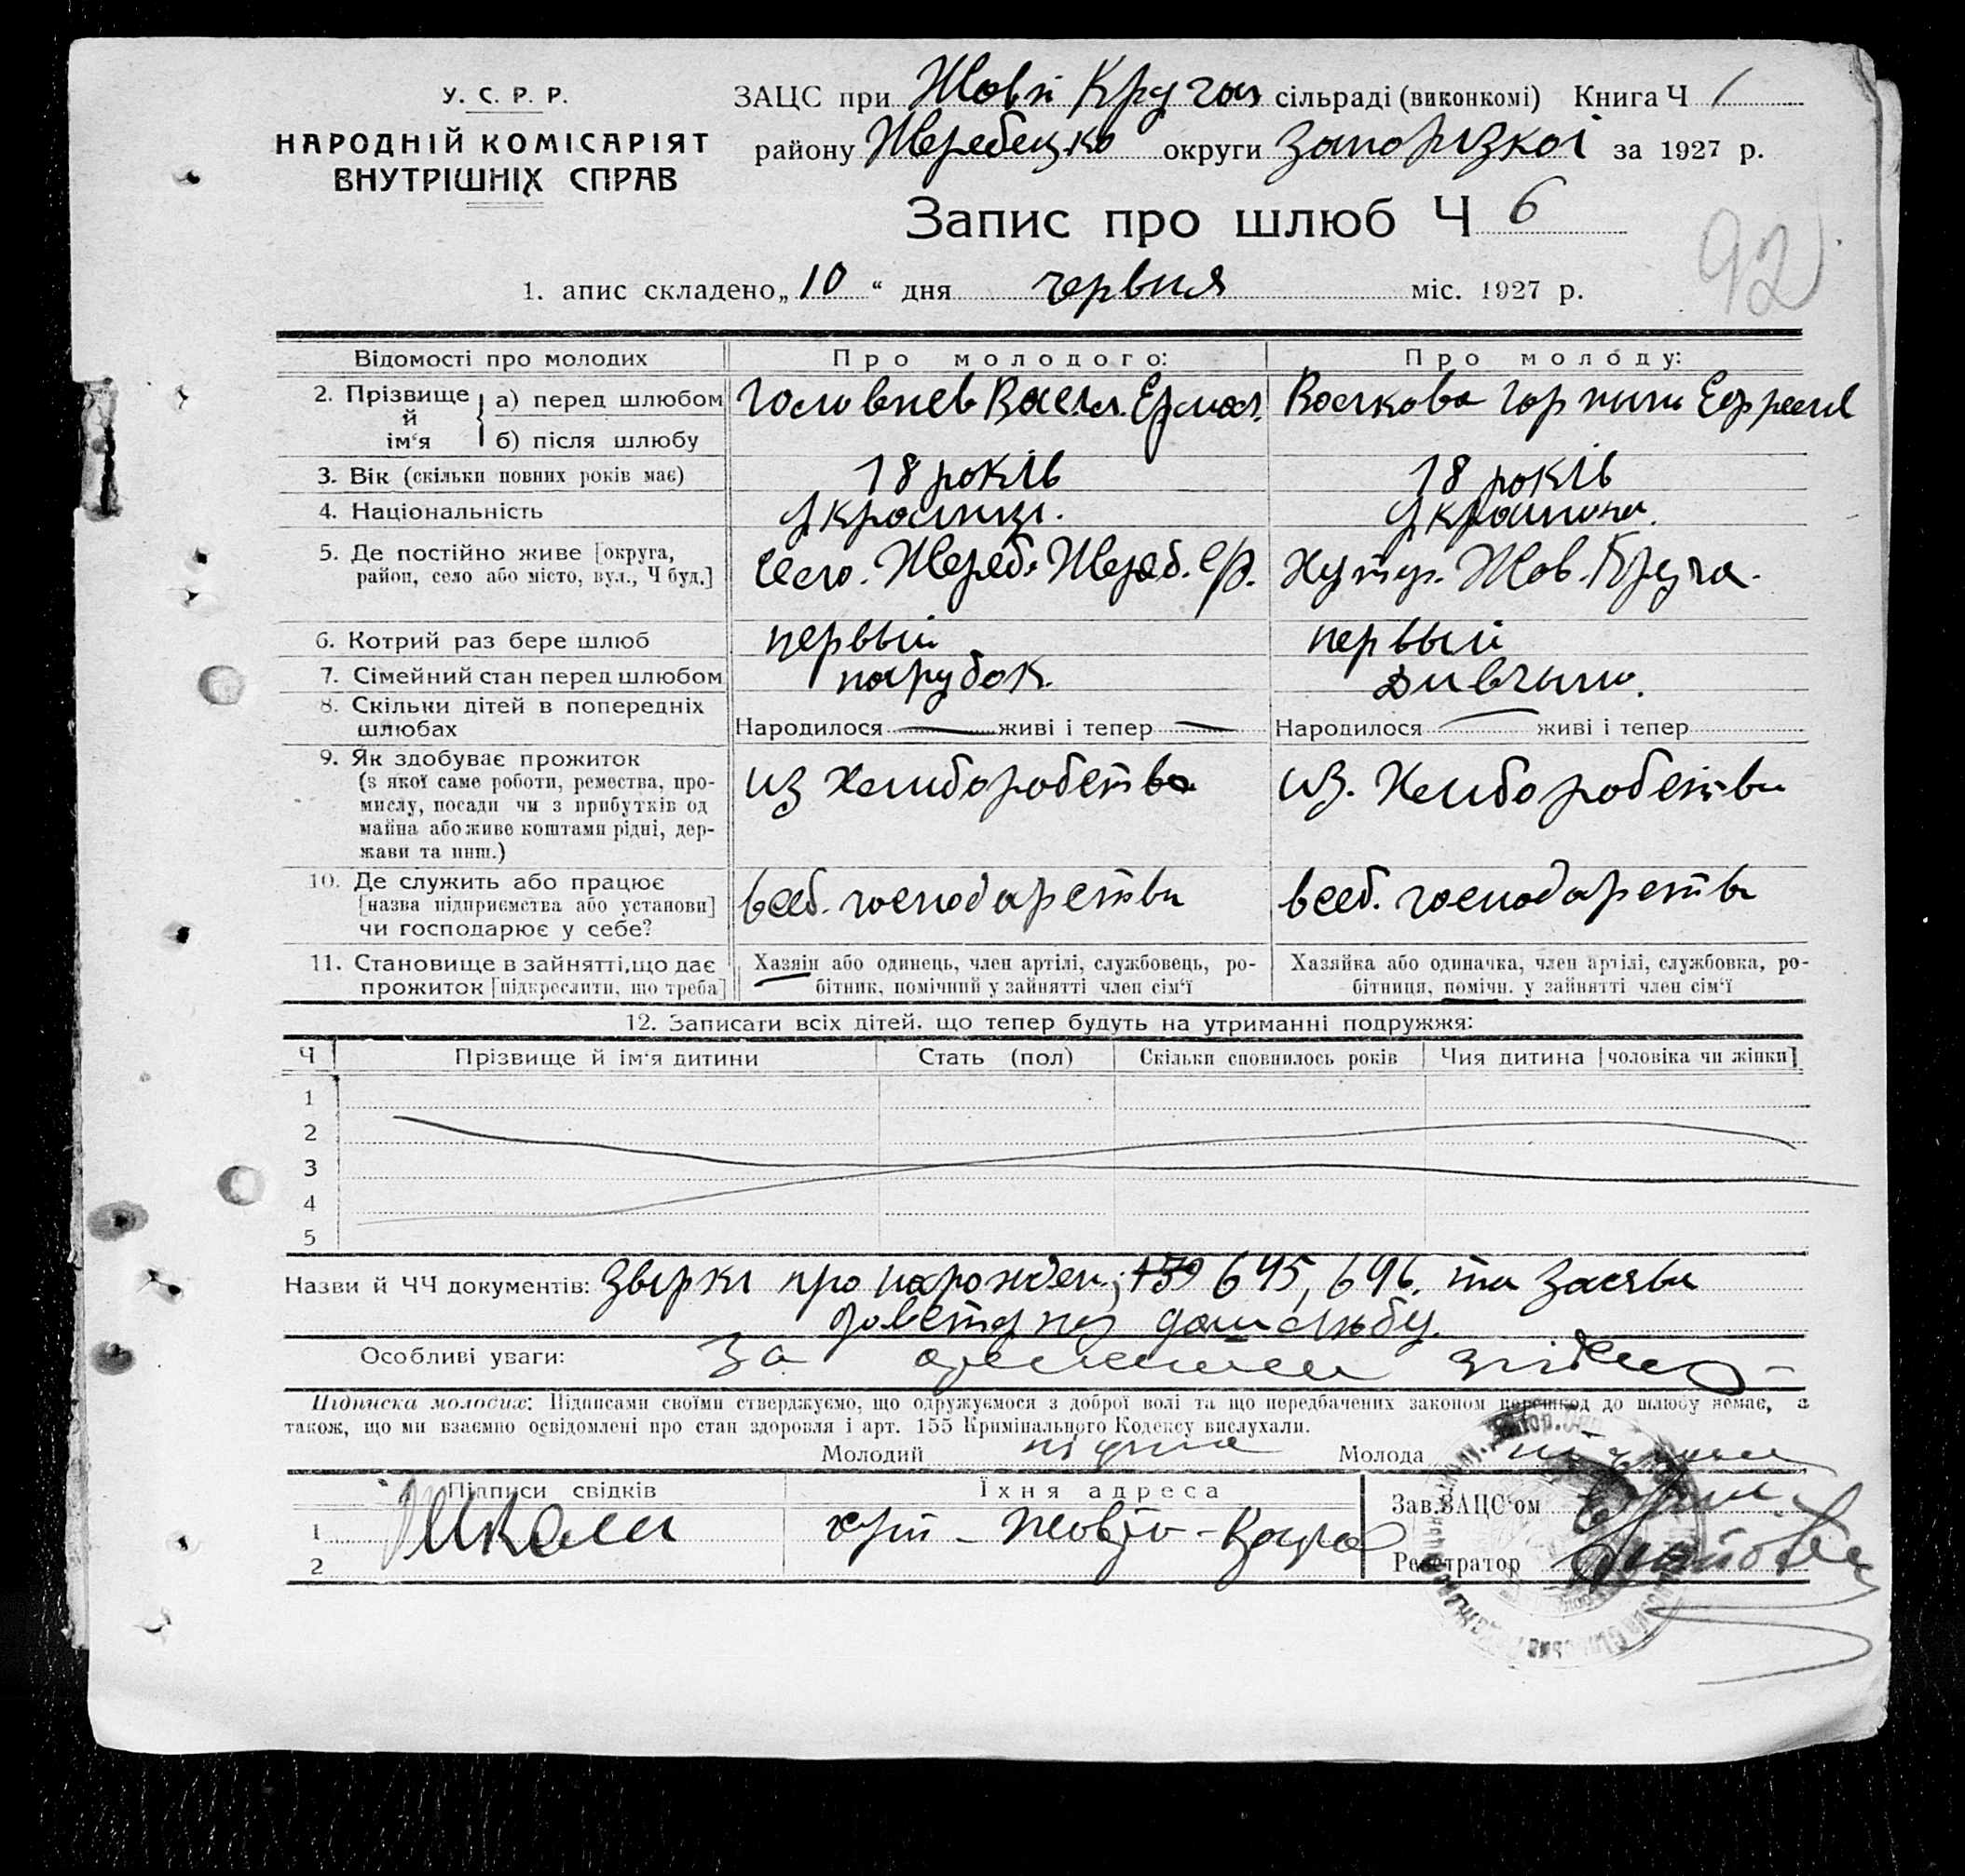 У. С. Р. Р.
НАРОДНІЙ КОМІСАРІЯТ
ВНУТРІШНІХ СПРАВ
ЗАЦС при Жовті Кручи сільраді (виконкомі) Книга Ч 1
району Жеребецько округи Запоризкоі за 1927 р.
Запис про шлюб Ч 6
92
1. апис складено „10“ дня червня міс. 1927 р.
Відомості про молодих
Про молодого:
Про молоду:
2. Прізвище й ім'я
а) перед шлюбом
б) після шлюбу
Головнев Васил. Ермол.
Волкова Горпина
3. Вік (скільки повних років має)
18 років
18 років
4. Національність
Украинци.
Украинка.
5. Де постійно живе [округа,
район, село або місто, вул., Ч буд.]
село. Жереб. Жереб. р.
Хутур. Жов. Круча.
6. Котрий раз бере шлюб
первый
первый
7. Сімейний стан перед шлюбом
парубок.
Дивчина.
8. Скільки дітей в попередніх
шлюбах
Народилося — живі і тепер —
Народилося — живі і тепер
9. Як здобуває прожиток
(з якої саме роботи, ремества, про-
мислу, посади чи з прибутків од
майна або живе коштами рідні, дер-
жави та инш.)
из Хлиборобства
из. Хлиборобства
10. Де служить або працює
[назва підприємства або установи]
чи господарює у себе?
всеб. господарства
всеб. господарства
11. Становище в зайнятті, що дає
прожиток [підкреслити, що треба]
Хазяїн або одинець, член артілі, службовець, ро-
бітник, помічний у зайнятті член сім'ї
Хазяйка або одиначка, член артілі, службовка, ро-
бітниця, помічн. у зайнятті член сім'ї
12. Записати всіх дітей, що тепер будуть на утриманні подружжя:
Ч
Прізвище й ім'я дитини
Стать (пол)
Скільки сповнилось років
Чия дитина [чоловіка чи жінки]
1
2
3
4
5
Назви й ЧЧ документів: про нарожден., 645, 696. та Заява
дошлюбу.
Особливі уваги: За згідно
Підписка молодих: Підписами своїми стверджуємо, що одружуємося з доброї волі та що передбачених законом перешкод до шлюбу немає, а
також, що ми взаємно освідомлені про стан здоровля і арт. 155 Кримінального Кодексу вислухали.
Молодий
Молода
Підписи свідків
Їхня адреса
1
хут - Жовто - Круча
2
Зав. ЗАЦС'ом
Реєстратор